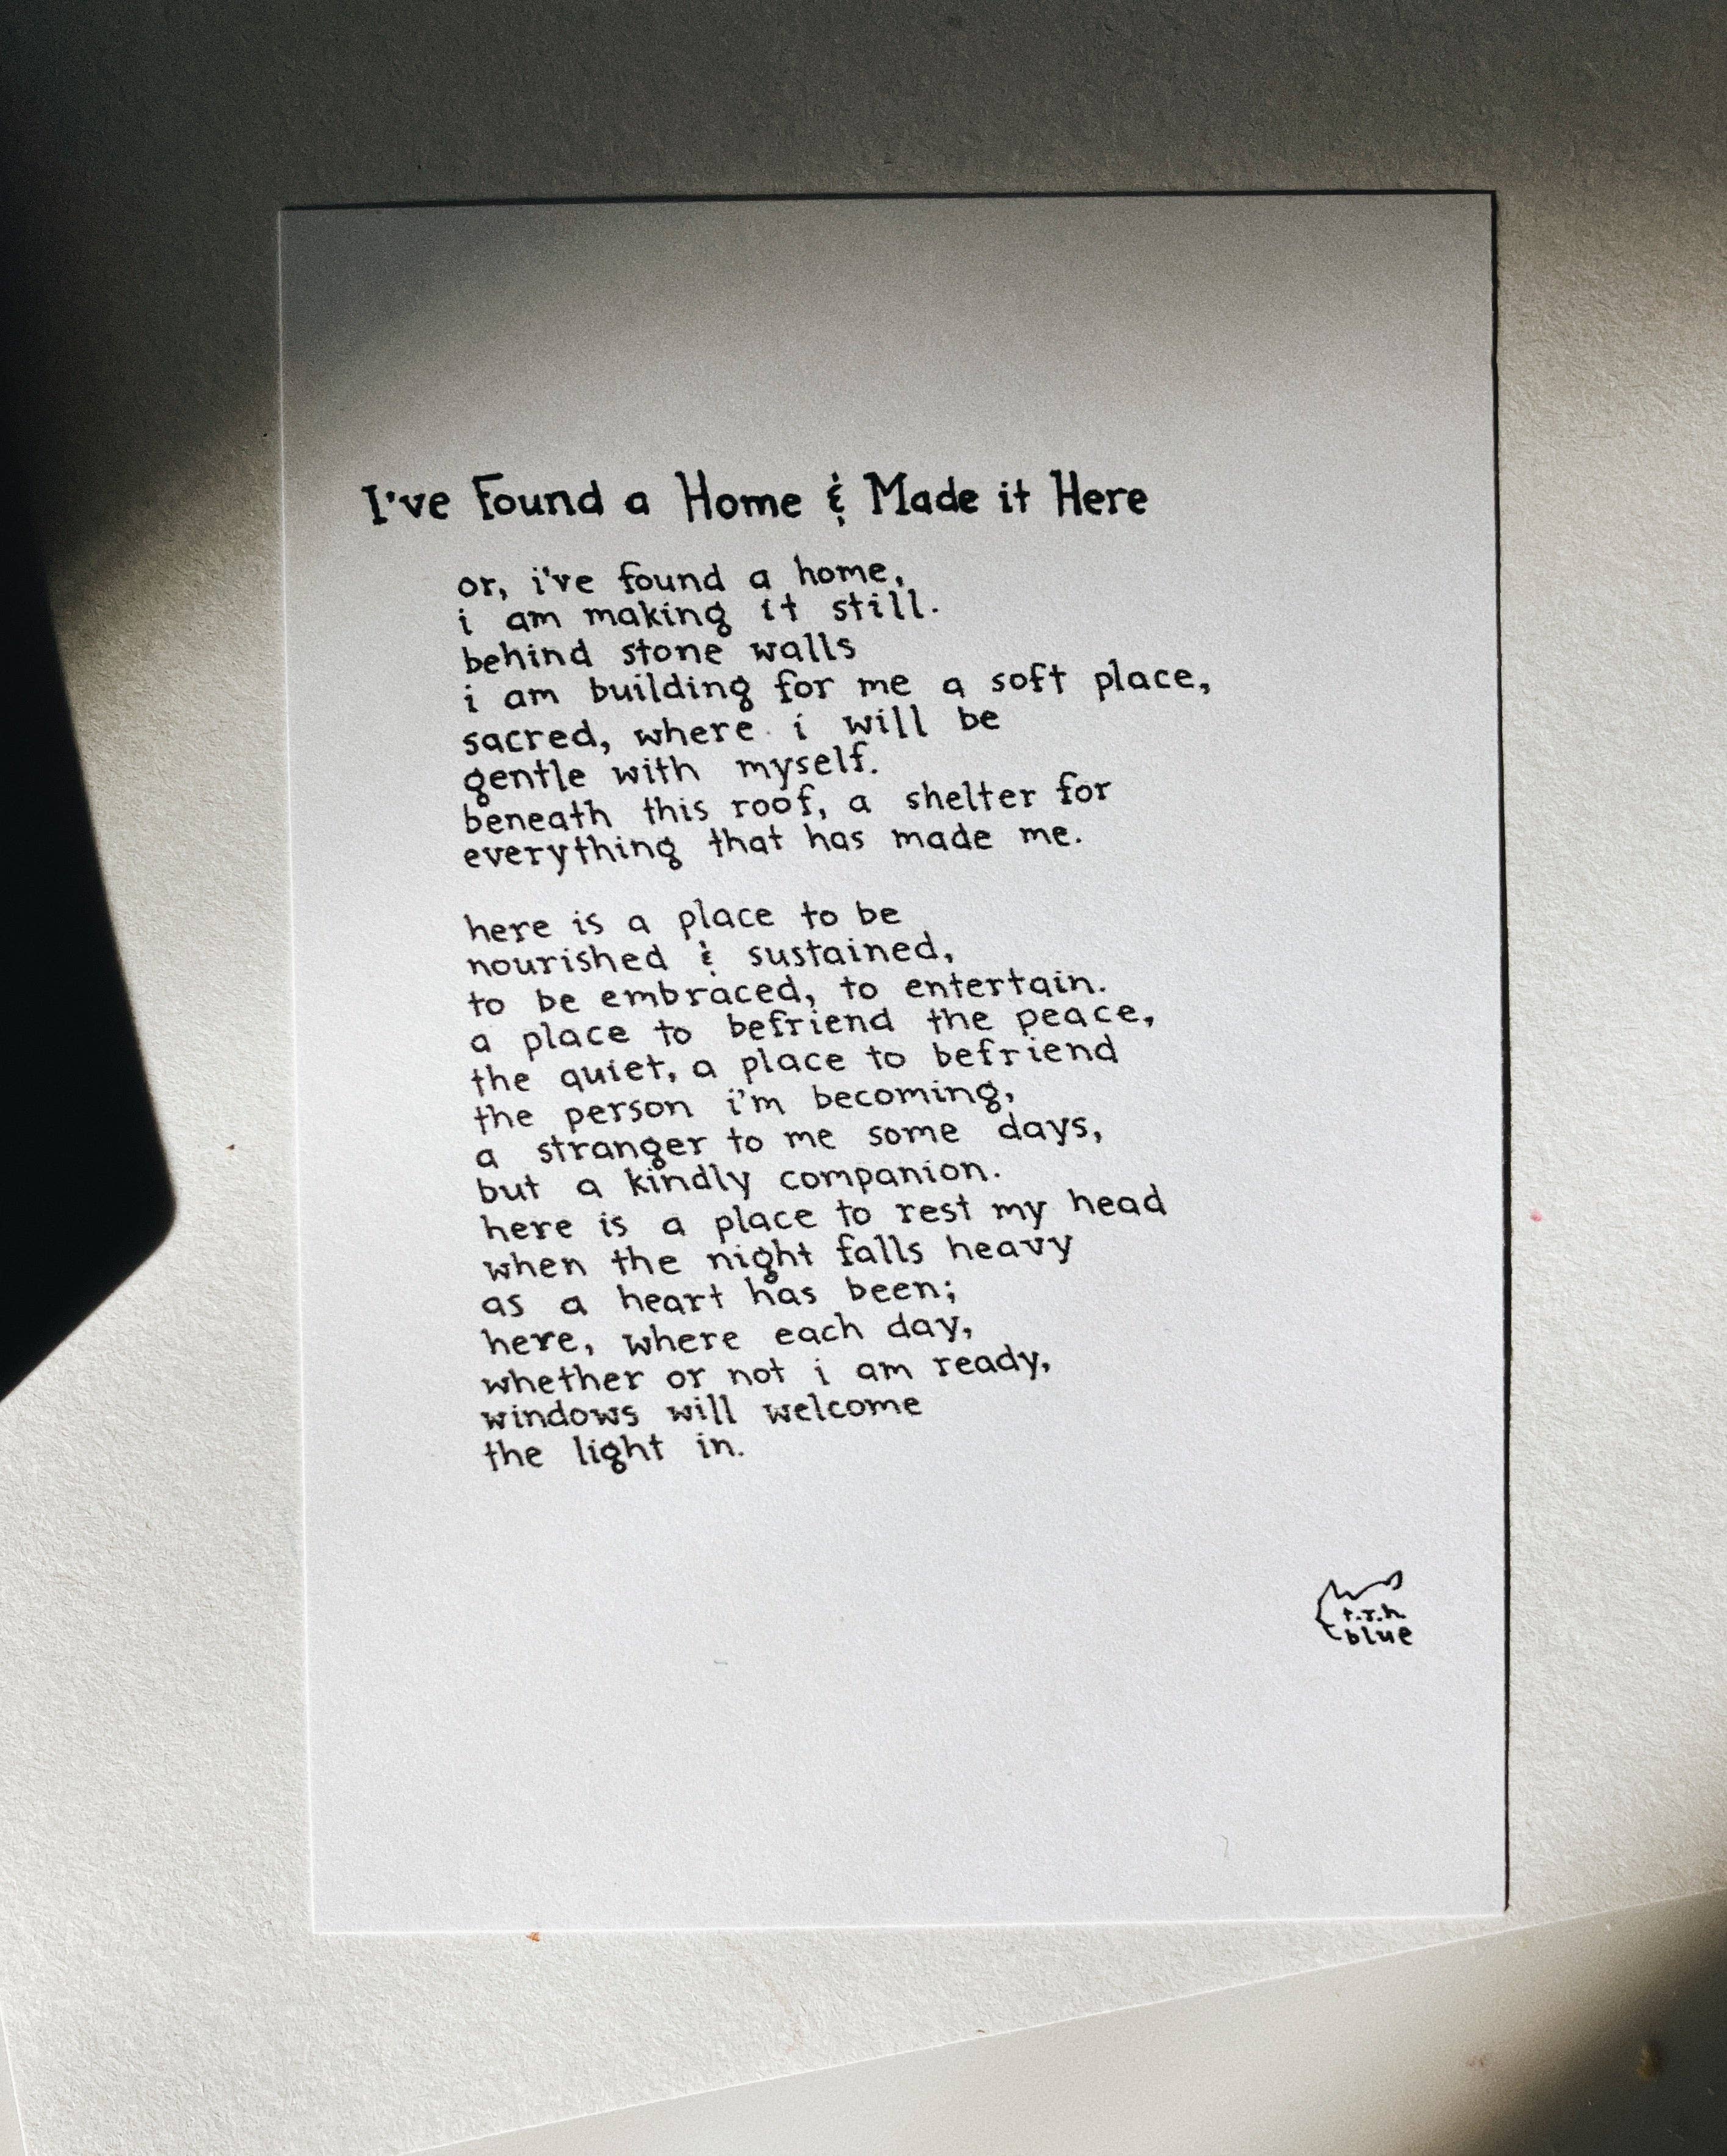 I've Found a Home & Made it Here
or, i've found a home,
i am making it still.
behind stone walls
i am building for me a soft place,
sacred, where i will be
gentle with myself.
beneath this roof, a shelter for
everything that has made me.
here is a place to be
nourished & sustained,
to be embraced, to entertain.
a place to befriend the peace,
the quiet, a place to befriend
the person i'm becoming,
a stranger to me some days,
but a kindly companion.
here is a place to rest my head
when the night falls heavy
as a heart has been;
here, where each day,
whether or not i am ready,
windows will welcome
the light in.
t.r.h
blue